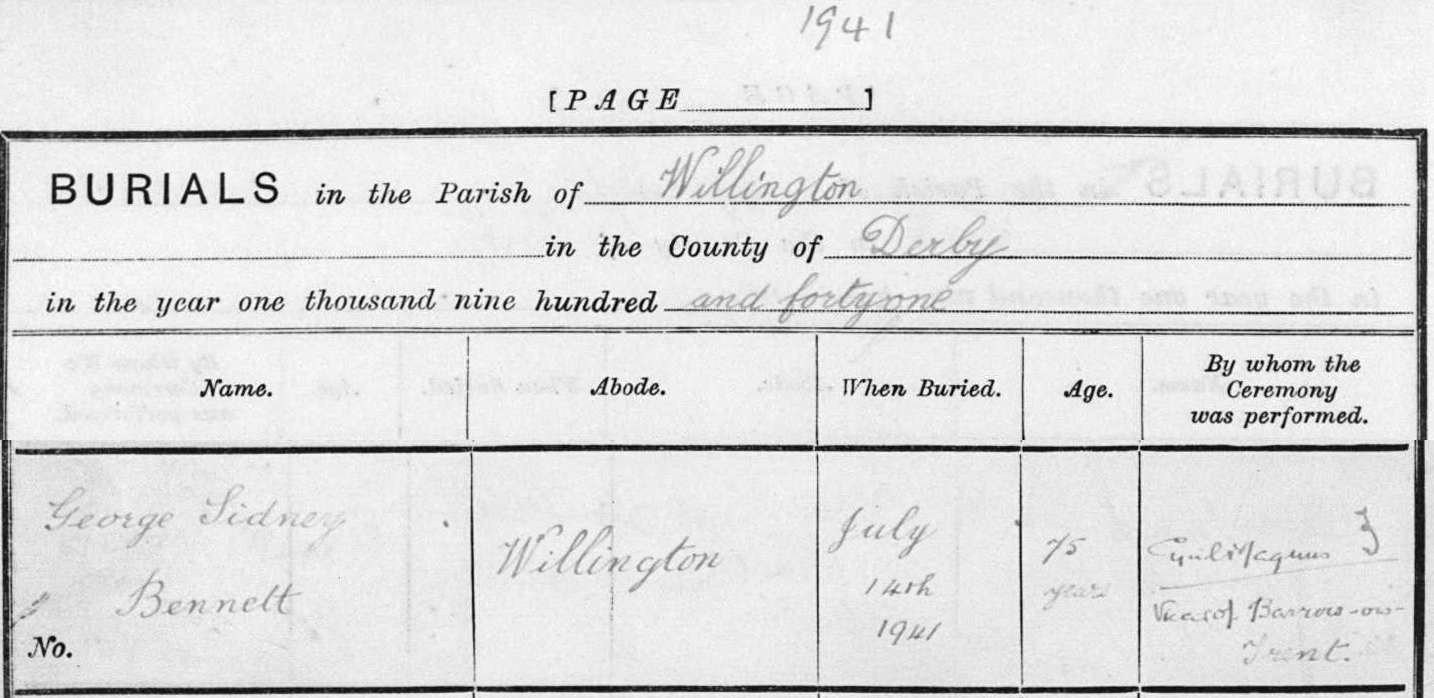 1941
[PAGE ]
BURIALS in the Parish of Willington
in the County of Derby
in the year one thousand nine hundred and fortyone
Name.
Abode.
When Buried.
Age.
By whom the
Ceremony
was performed.
George Sidney
Bennett
No.
Willington
July
14th
1941
75
years
Vicar of Barrow-on-
Trent.